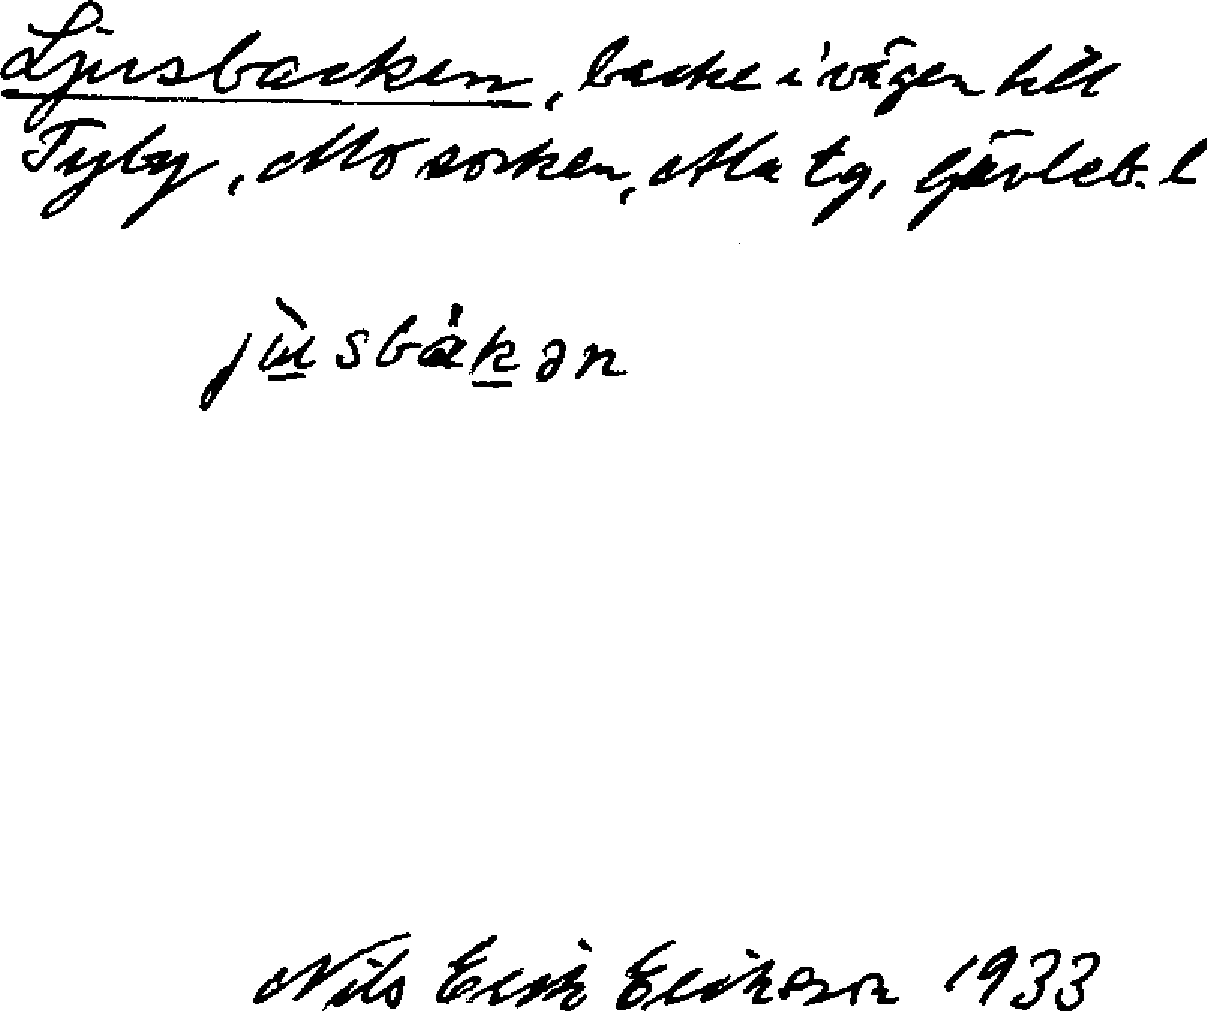 Ljusbacken, backe i vägen till
Tyby, Mo socken, Ala tg, Gävleb. l
jùsbákən
Nils Erik Erikson 1933